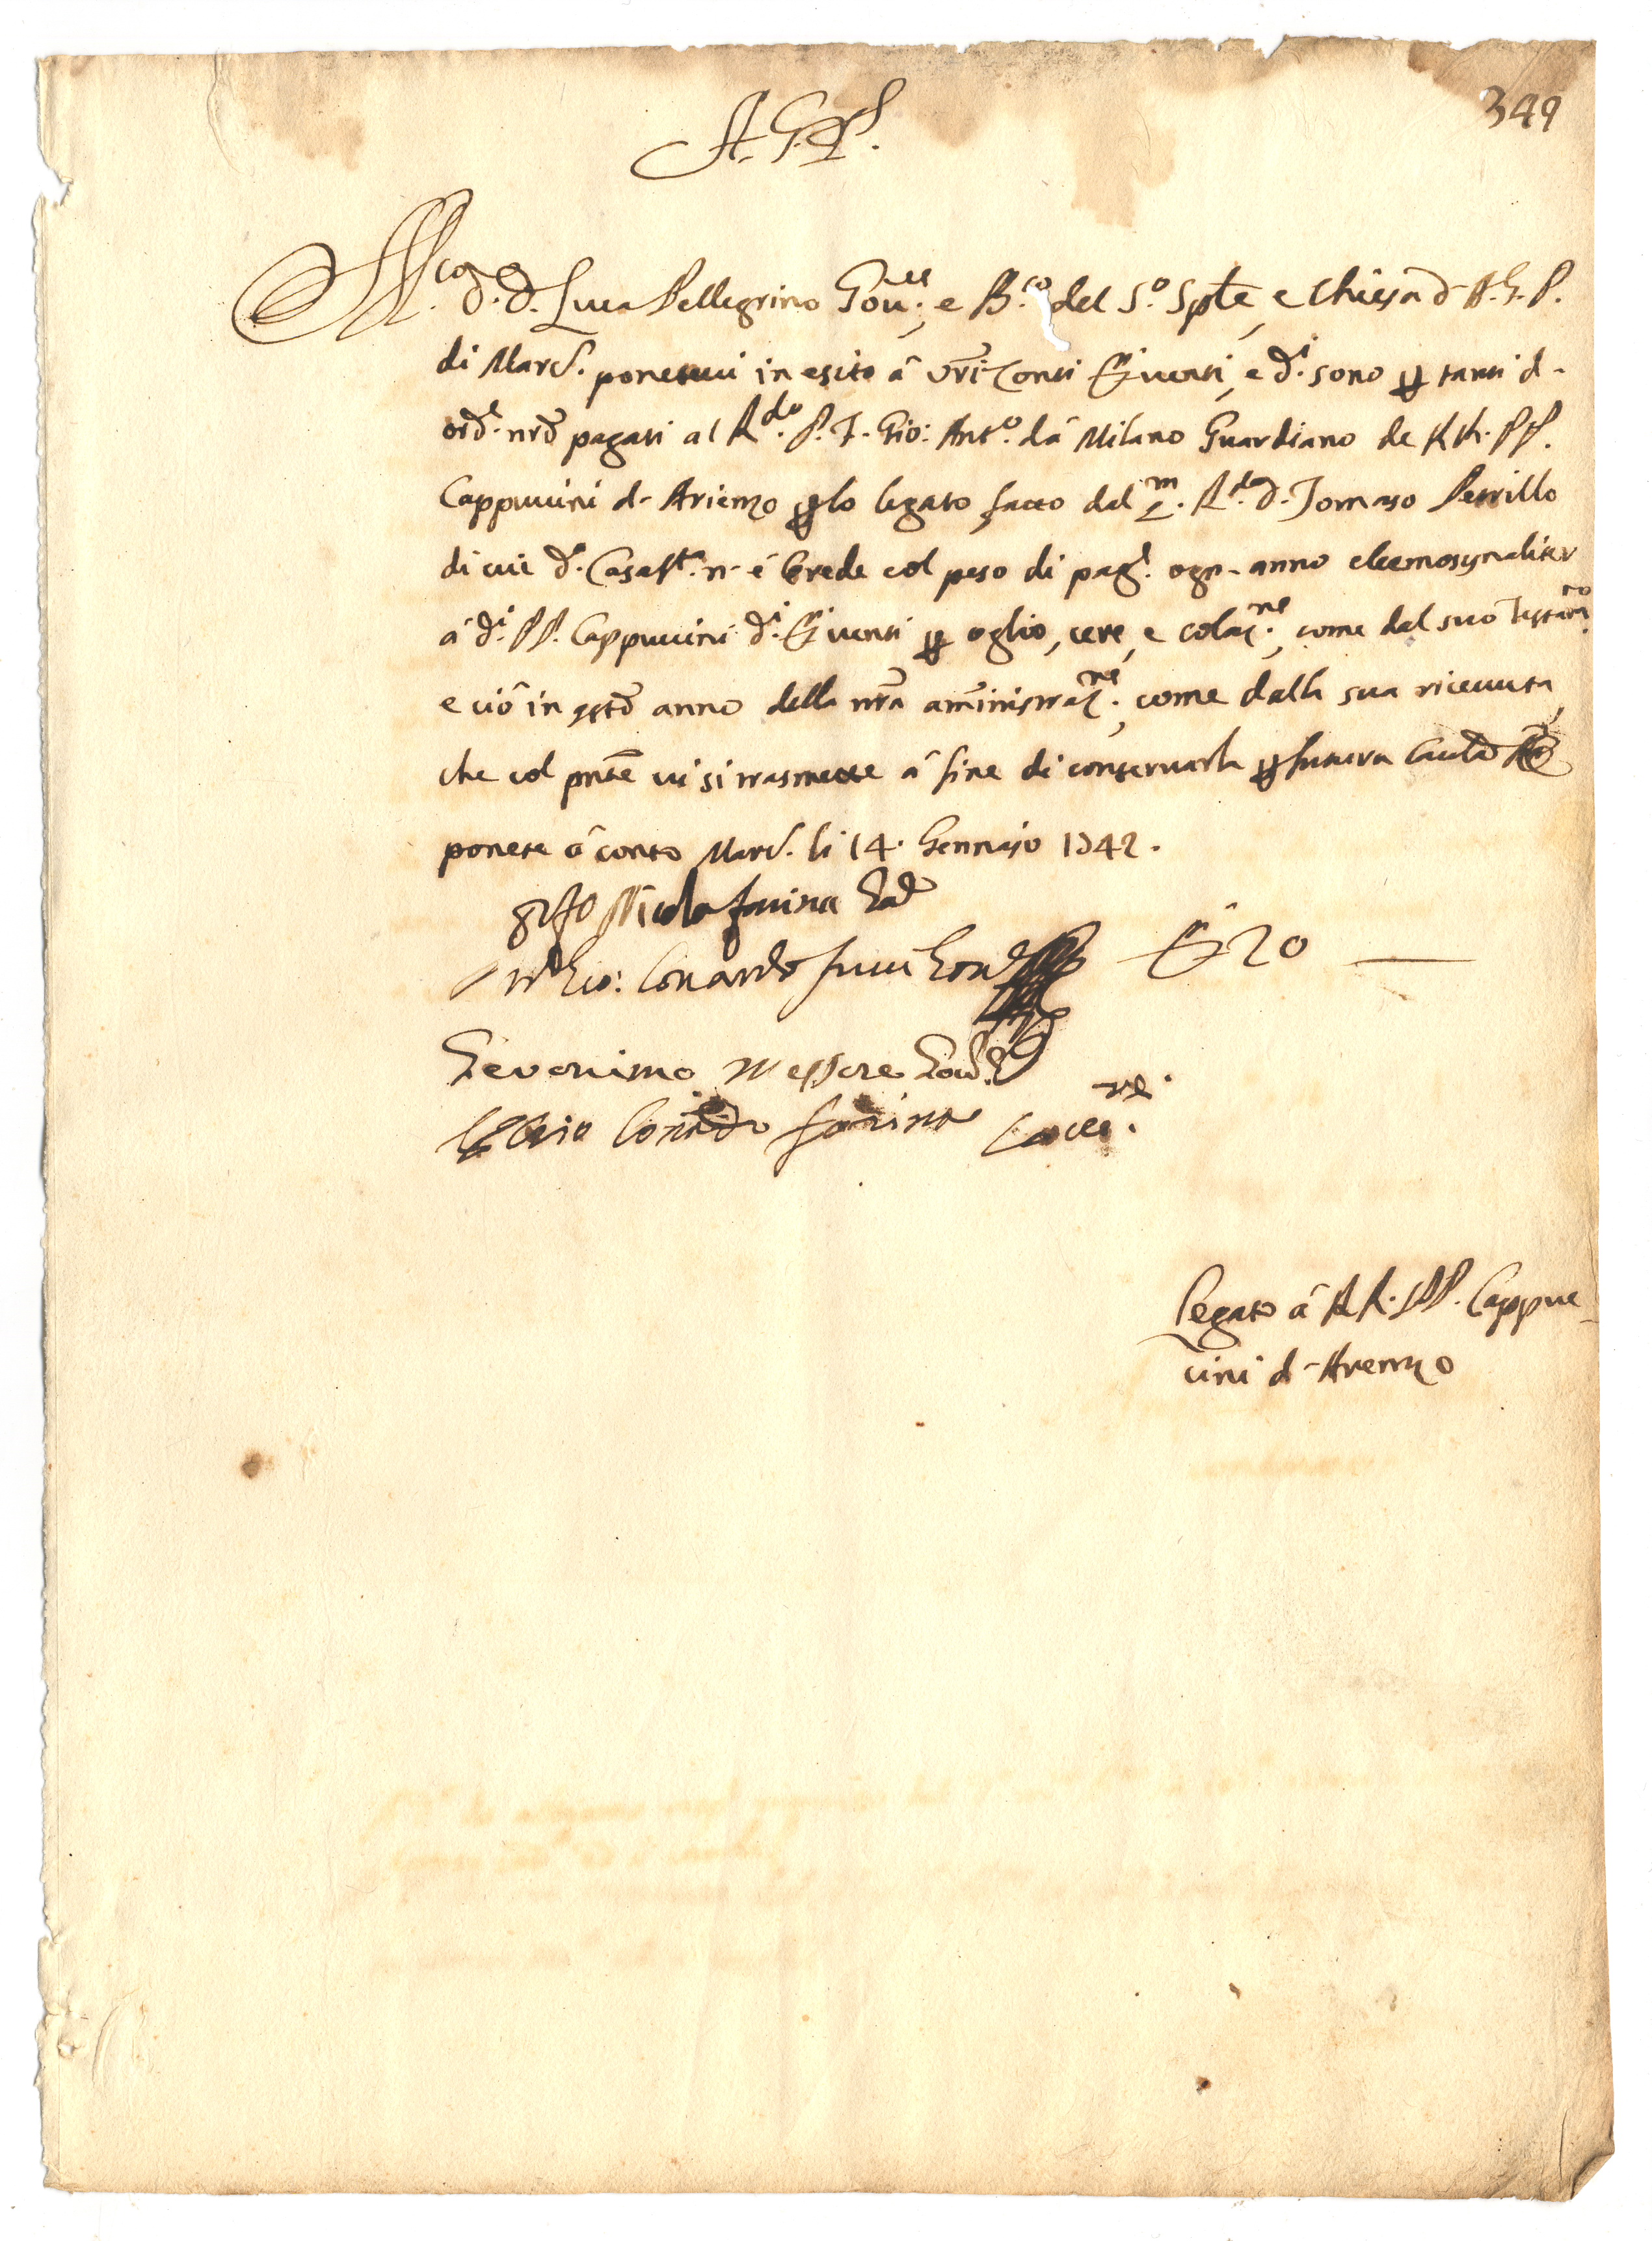 349
A. G. P.
M.co D. D. Luca Pellegrino Gov.re, e B.ro del S.o Spłe, e Chiesa d- A. G. P.
di Marc. ponetevi in esito á vri Conti D. venti, e d.i sono p tanti d-
ord.e nrõ pagati al R.do P. F. Gio: Ant.o dá Milano Guardiano de RR. PP.
Cappuccini d- Arienzo p lo legato facto dal m. R.do D. Tomaso Petrillo
di cui d.a Casa St.a n- é herede col peso di pag.e ogn- anno eleemosynaliter
á d.i PP. Cappuccini d.i D. venti p oglio, cere, e colaz.ne, come dal suo Testam.to
e ció in qsto anno della nrã amministraz.ne, come dalla sua ricevuta,
che col pnte vi si trasmette á fine di conservarla p futura cautã
ponete á conto Marc. li 14. Gennaio 1742.
Nicola farina
Gio: Conardo D. 20 —
Geronimo Messere Gov.re
farina
Legato á RR. PP. Cappuc-
cini d- Arienzo